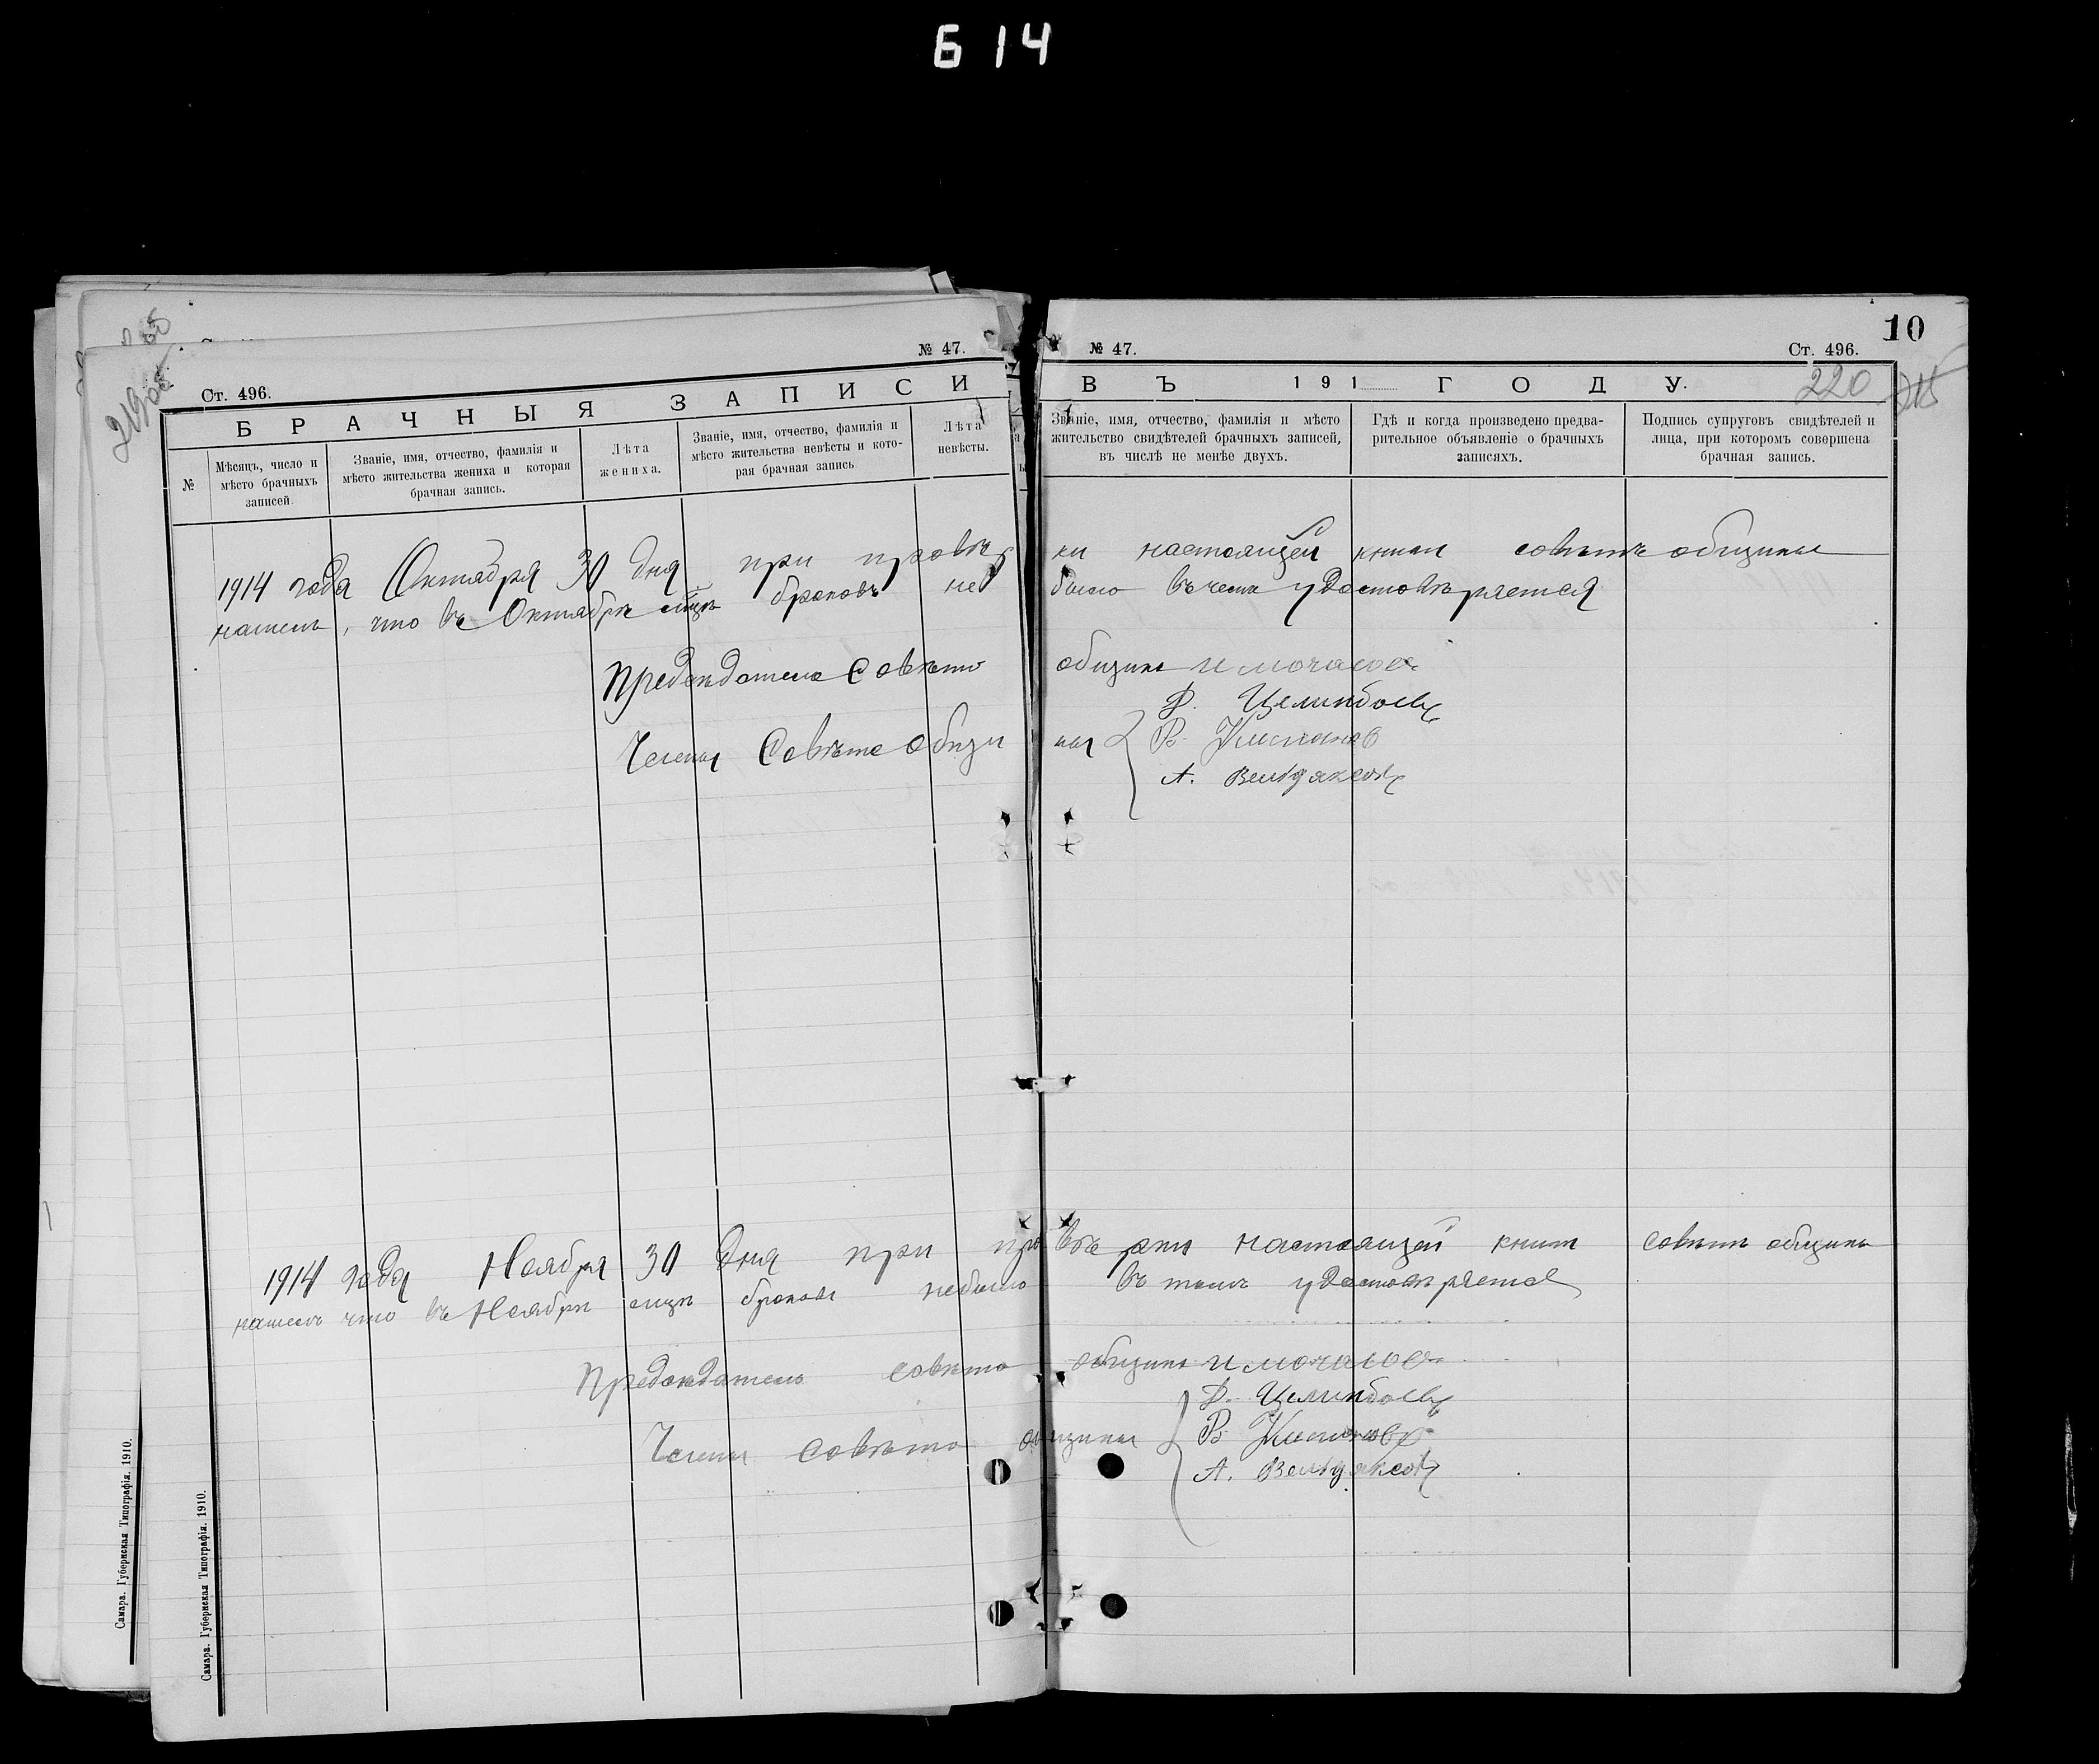 Б 14
Ст. 496.
№ 47.
БРАЧНЫЯ ЗАПИСИ
№
Мѣсяцъ, число и
мѣсто брачныхъ
записей.
Званіе, имя, отчество, фамилія и
мѣсто жительства жениха и которая
брачная запись.
Лѣта
жениха.
Званіе, имя, отчество, фамилія и
мѣсто жительства невѣсты и кото-
рая брачная запись
Лѣта
невѣсты.
№ 47.
Ст. 496.
10
ВЪ 191 ГОДУ.
220
215
Званіе, имя, отчество, фамилія и мѣсто
жительство свидѣтелей брачныхъ записей,
въ числѣ не менѣе двухъ.
Гдѣ и когда произведено предва-
рительное объявленіе о брачныхъ
записяхъ.
Подпись супруговъ свидѣтелей и
лица, при которомъ совершена
брачная запись.
1914 года Октября 30 дня при провѣр ки настоящей книги совѣтъ общины
нашелъ, что въ Октябрѣ мцѣ браковъ не было въ чемъ удостовѣряется
Предсѣдатель Совѣта общины
Члены Совѣта общи ны
1914 года Ноября 30 дня при про вѣрки настоящей книги совѣтъ общины
нашелъ что въ Ноябрѣ мцѣ браковъ небыло въ томъ удостовѣряется
Предсѣдатель совѣта общины
Члены совѣта общины
Самара. Губернская Типографія. 1910.
Самара. Губернская Типографія. 1910.